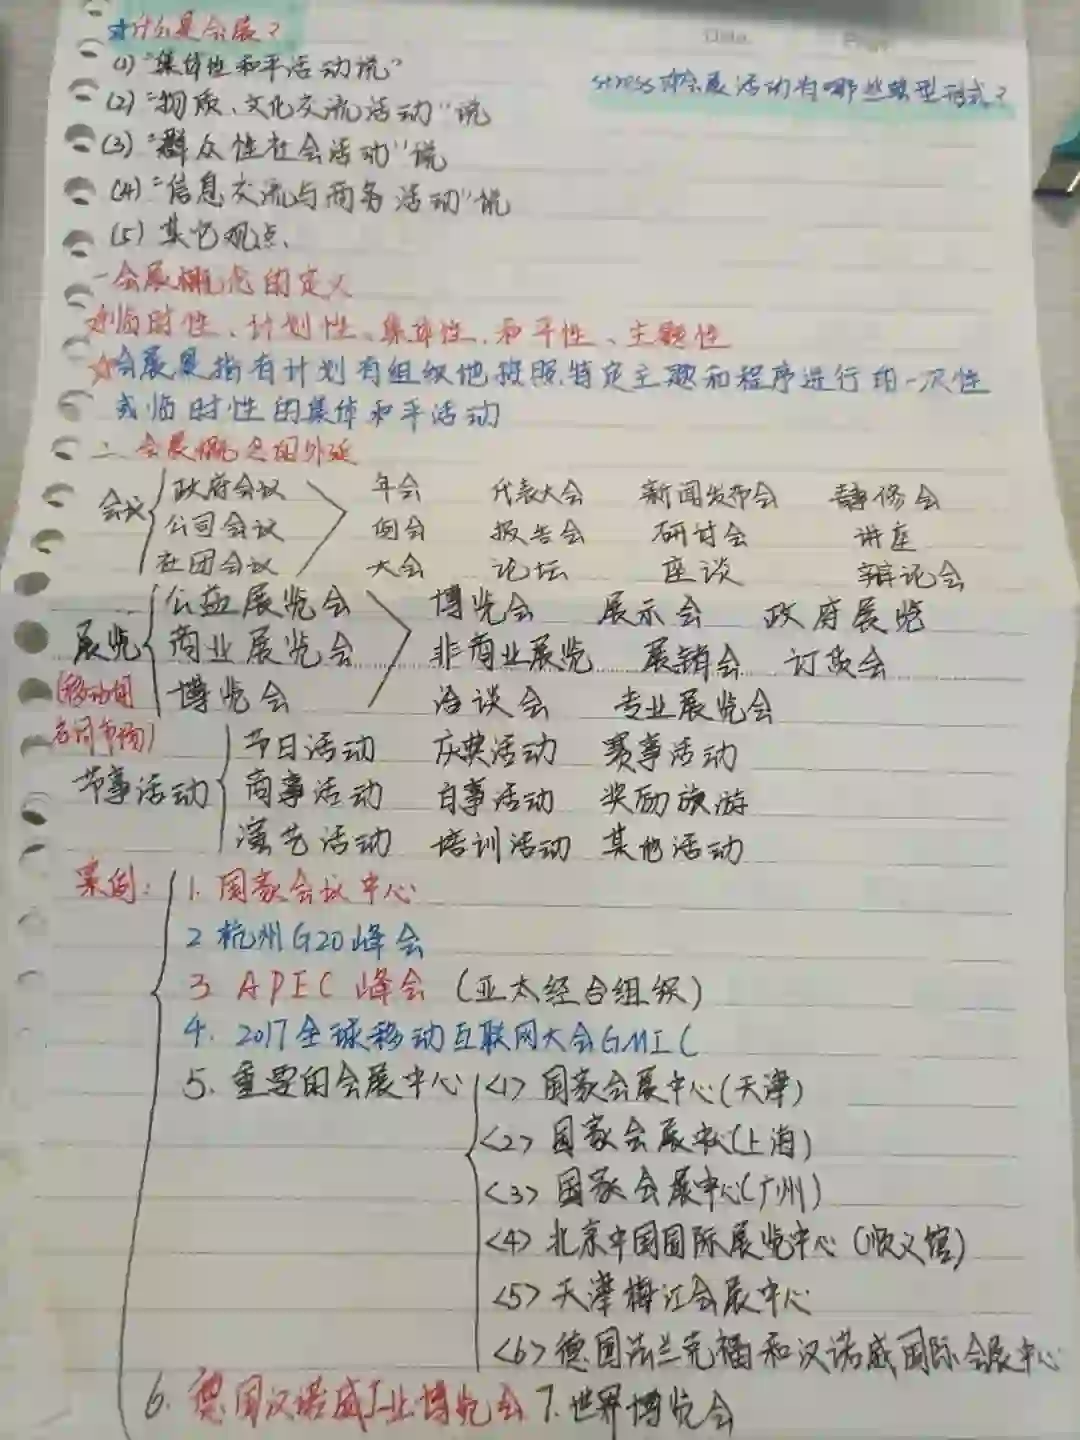 ☆什么是会展?
Date.
(1)"集体性和平活动说"
stress的会展活动有哪些典型形式?
(2)"物质、文化交流活动"说
(3)"群众性社会活动"说
(4)"信息交流与商务活动"说
(5)其它观点、
一会展概念的定义
临时性、计划性、集体性、和平性、主题性
☆会展是指有计划有组织地按照特定主题和程序进行的一次性
或临时性的集体和平活动
二、会展概念的外延
政府会议 年会 代表大会 新闻发布会 专修会
会议 公司会议 例会 报告会 研讨会 讲座
社团会议 大会 论坛 座谈 辩论会
公益展览会 博览会 展示会 政府展览
展览 商业展览会 非商业展览 展销会 订货会
(移动的 博览会 洽谈会 专业展览会
名词市场) 节日活动 庆典活动 赛事活动
节事活动 商事活动 白事活动 奖励旅游
演艺活动 培训活动 其他活动
案例: 1. 国家会议中心
2 杭州G20峰会
3 APEC 峰会 (亚太经合组织)
4. 2017全球移动互联网大会GMIC
5. 重要的会展中心 <1> 国家会展中心(天津)
<2> 国家会展中心(上海)
<3> 国家会展中心(广州)
<4> 北京中国国际展览中心 (顺义馆)
<5> 天津梅江会展中心
<6> 德国法兰克福和汉诺威国际会展中心
6. 德国汉诺威工业博览会 7. 世界博览会